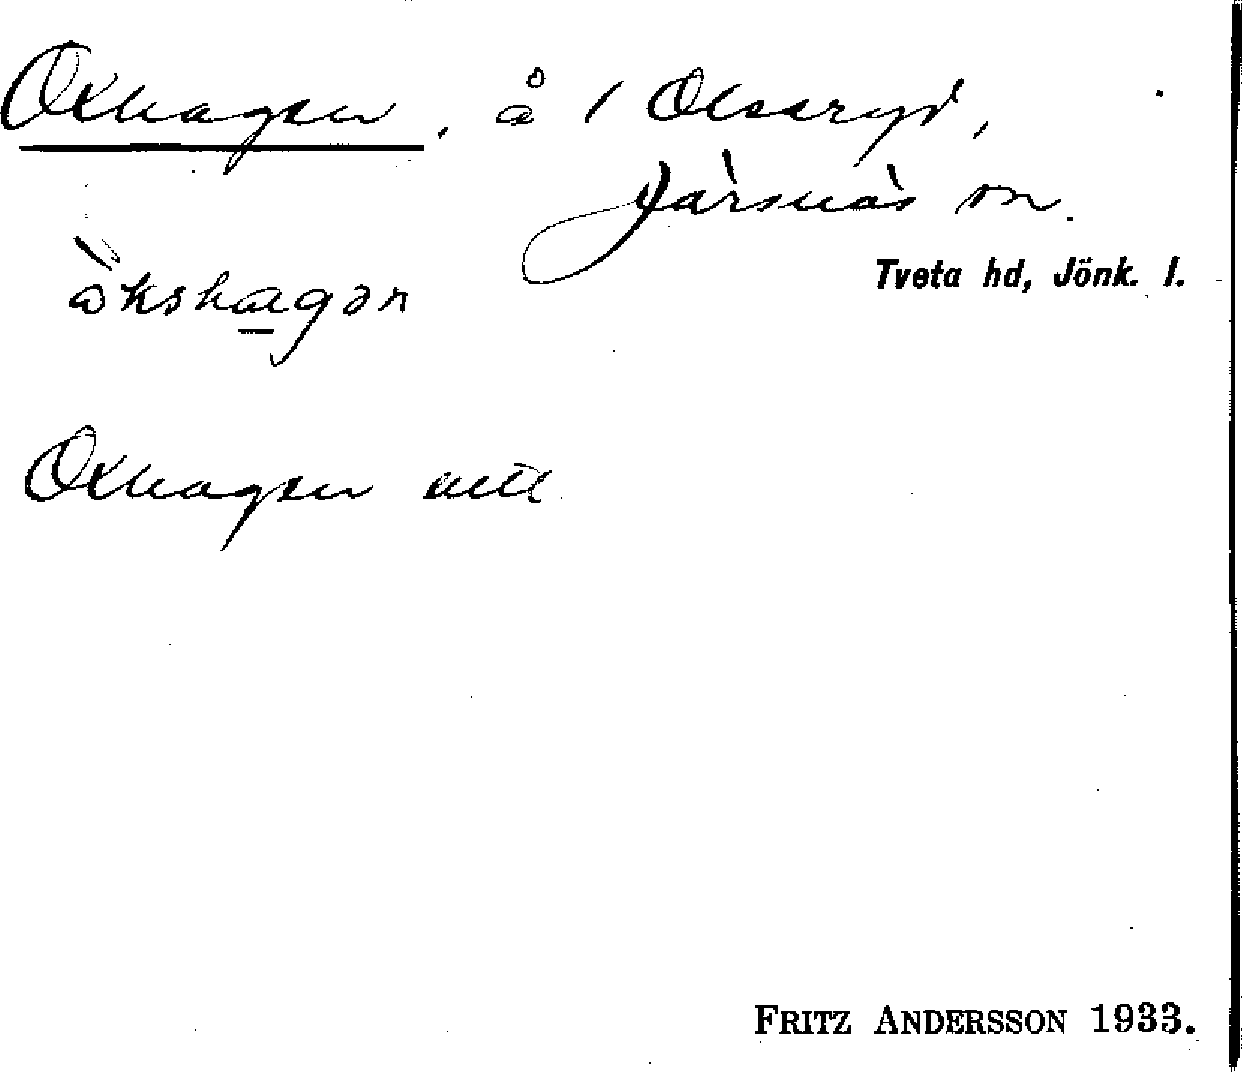 Oxhagen, å / Olseryd,
Järsnäs sn.
Tveta hd, Jönk. l.
ökshagən
Oxhagen aeta
FRITZ ANDERSSON 1933.